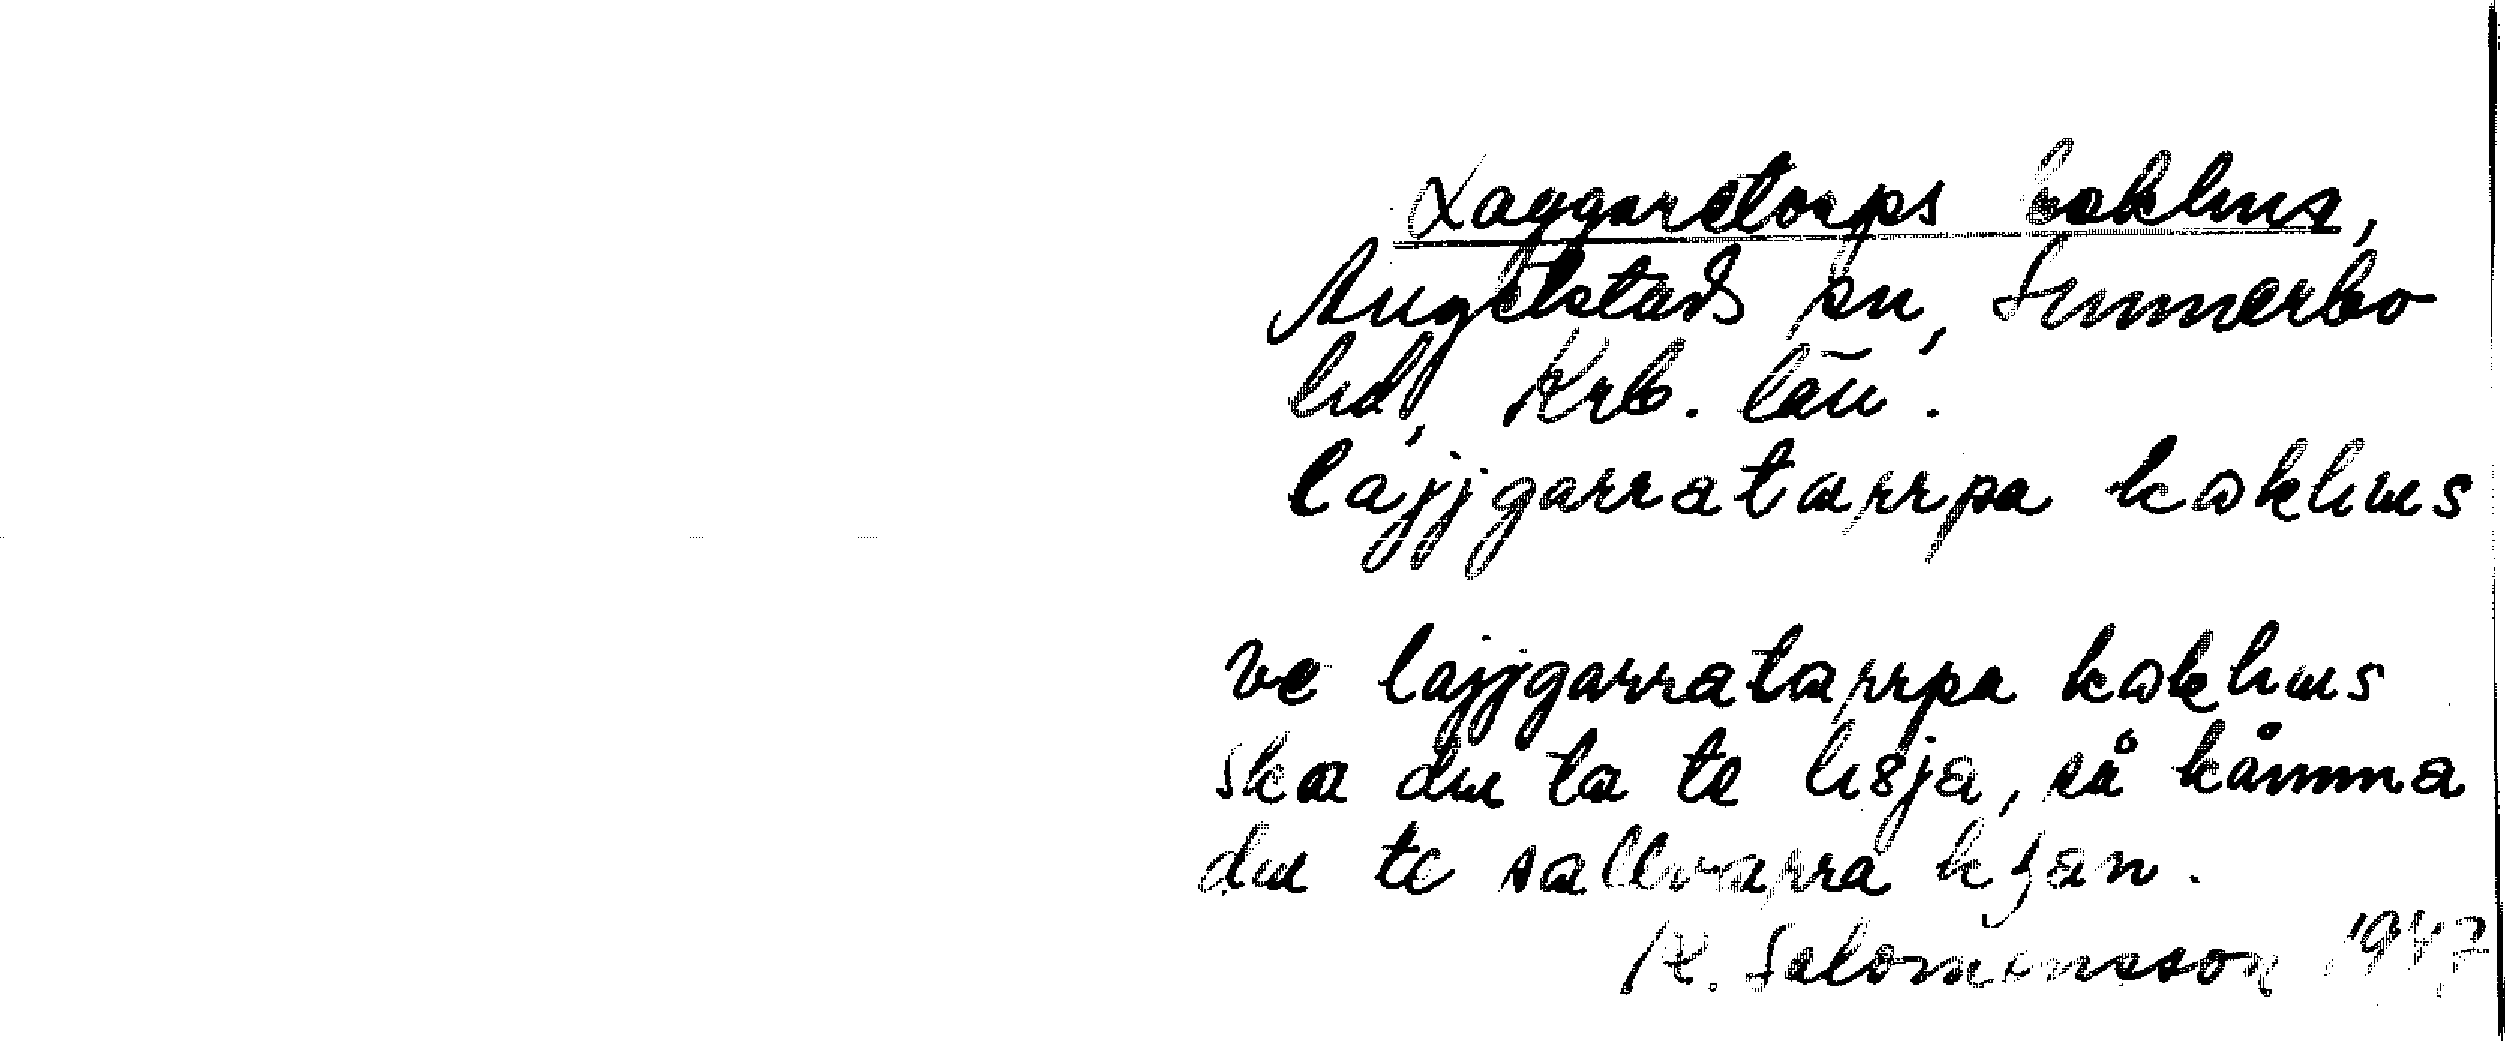 Laggaretorps kokhus,
Angelstads sn, Sunnerbo
hd, Krb. län.
lajjgarratarrpa kokhus
ve lajjgarratarrpa kokhus
ska du ta te hsja, så kåmma
du te sallvarra kjan.
K. Salomonsson 1947